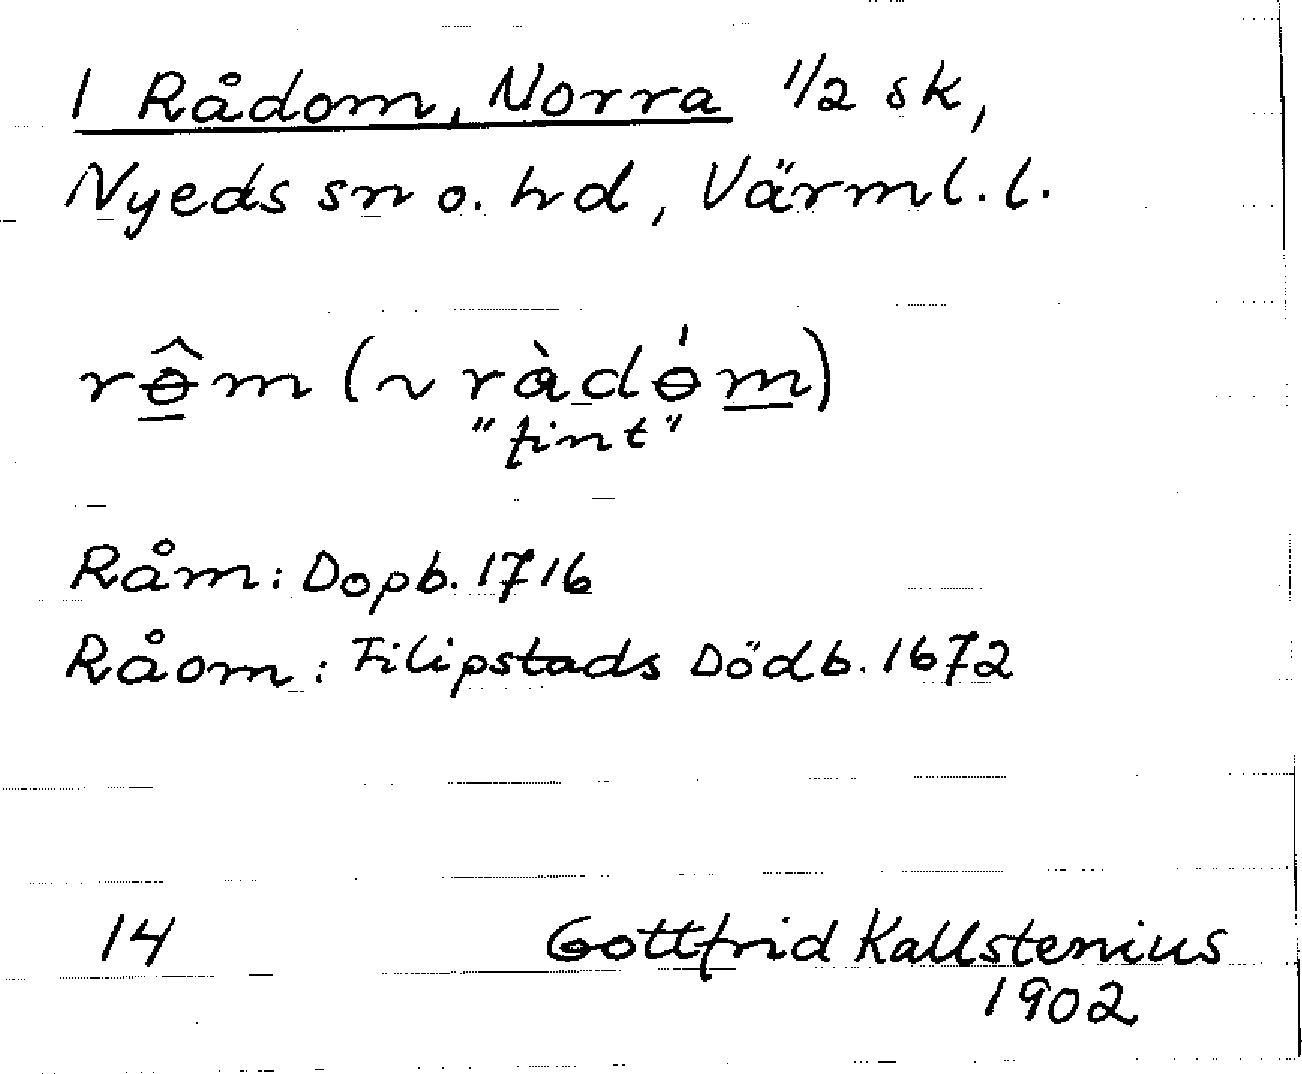 1 Rådom, Norra 1/2 sk,
Nyeds sn o. hd, Värml. l.
rɵ̂m (~ ràdɵ́m)
"fint"
Råm: Dopb. 1716
Råom: Filipstads Dödb. 1672
14 Gottfrid Kallstenius
1902